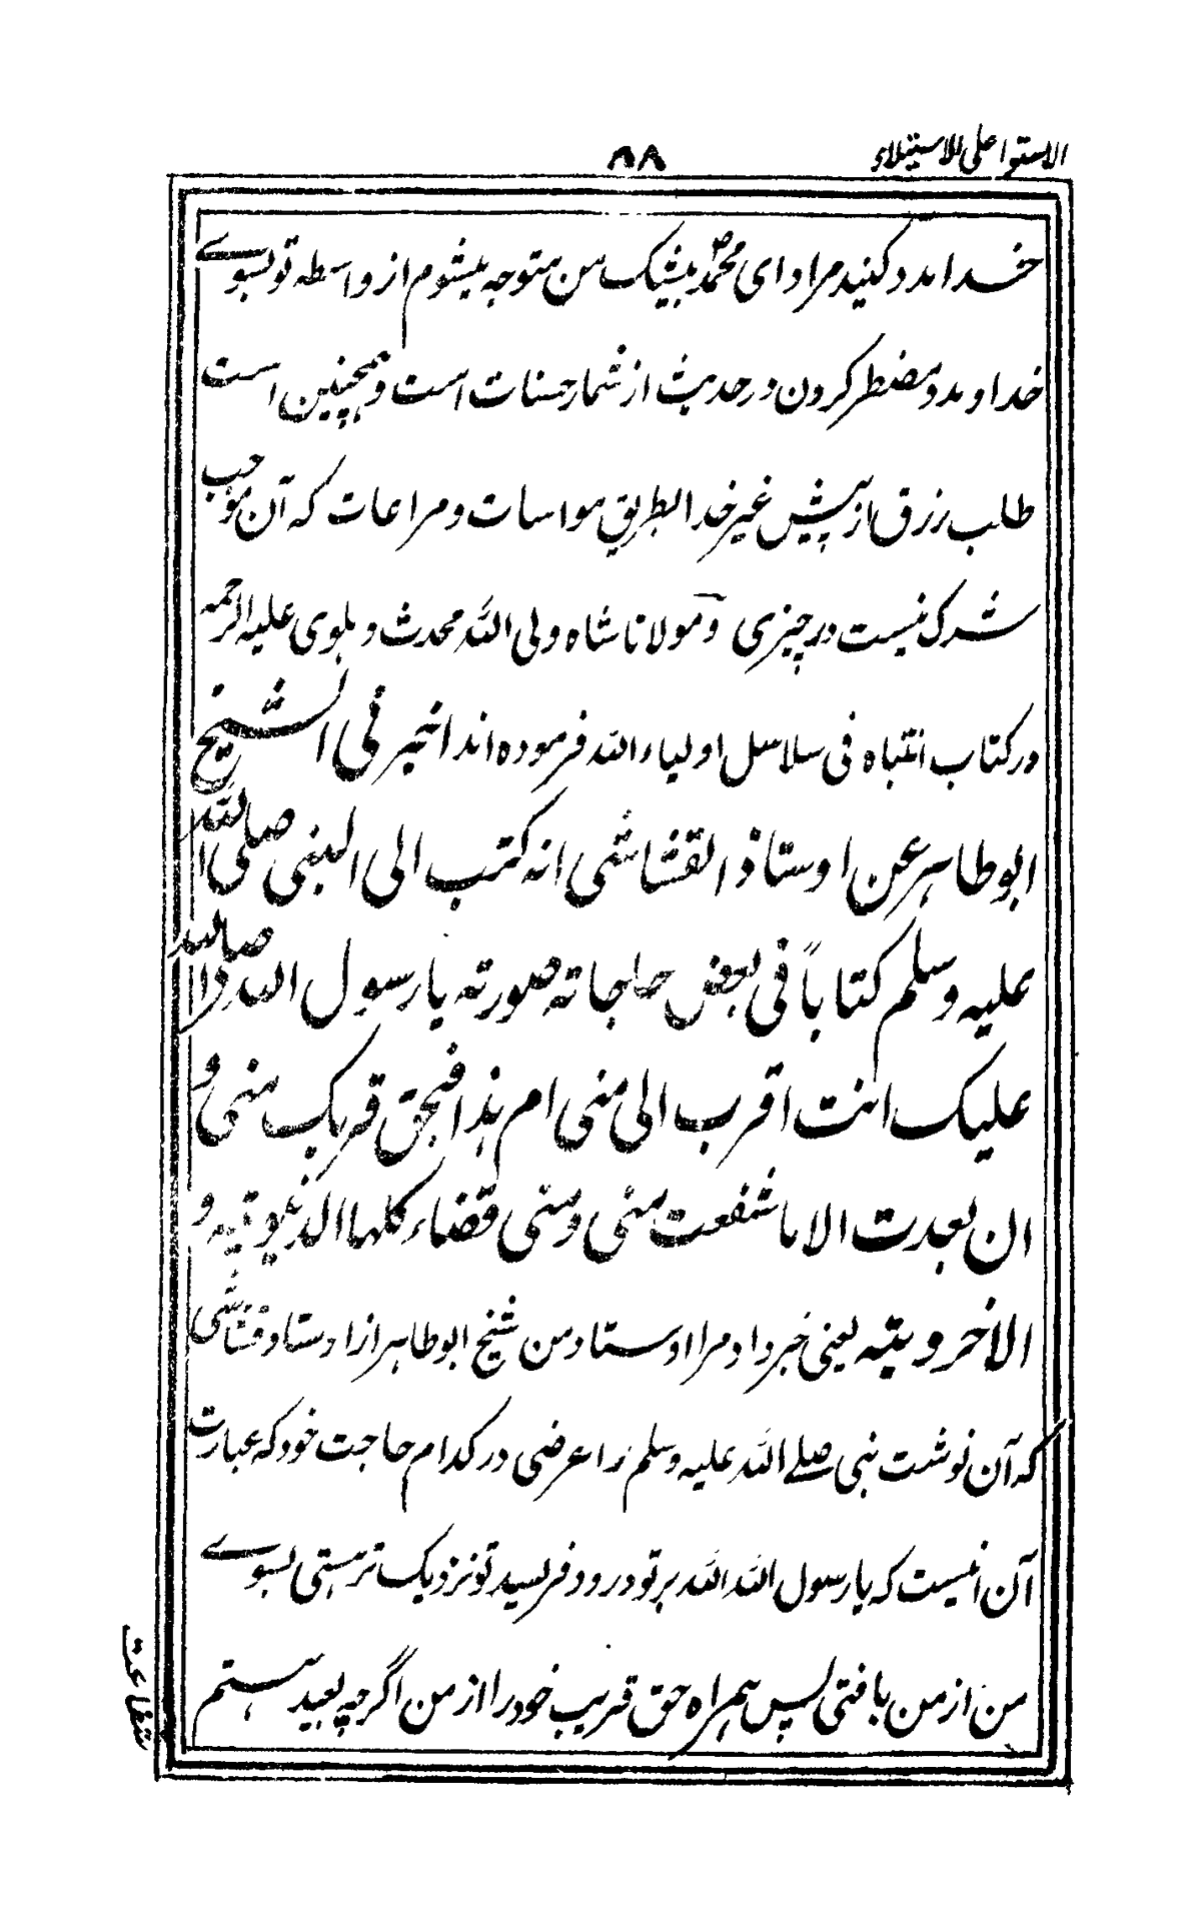 الاستوا علی الاستیلاء
۵۸
خدا مدد کنید مرا و ای محمدؐ بیشک من متوجه میشوم از واسطه تو بسوے
خدا و مدد مضطر کردن در حدیث از شمار حسنات است و همچنین است
طلب رزق از پیش غیر خدا بطریق مواسات و مراعات که آن موجب
شرک نیست در چیزی و مولانا شاه ولی الله محدث دهلوی علیه الرحمه
در کتاب انتباه فی سلاسل اولیاء الله فرموده اند اخبرنی الشیخ
ابو طاهر عن اوستاذ القشاشی انه کتب الی النبی صلی الله
علیه وسلم کتاباً فی بعض حاجاته صورته یا رسول الله صلی الله
علیک انت اقرب الی منی ام هذا فبحق قربک منی و
ان بعدت الا ما شفعت منی و منی قضاء کلها الدنیویته و
الاخرویته یعنی خبر داد مرا اوستاد من شیخ ابو طاهر از اوستاد قشاشی
که آن نوشت نبی صلے الله علیه وسلم را عرضی در کدام حاجت خود که عبارت
آن انیست که یا رسول الله الله بر تو درود فریسید تو نزدیک تر هستی بسوے
من از من یا فتی پس همراه حق قریب خود را از من اگرچه بعید هستم
شفاعت